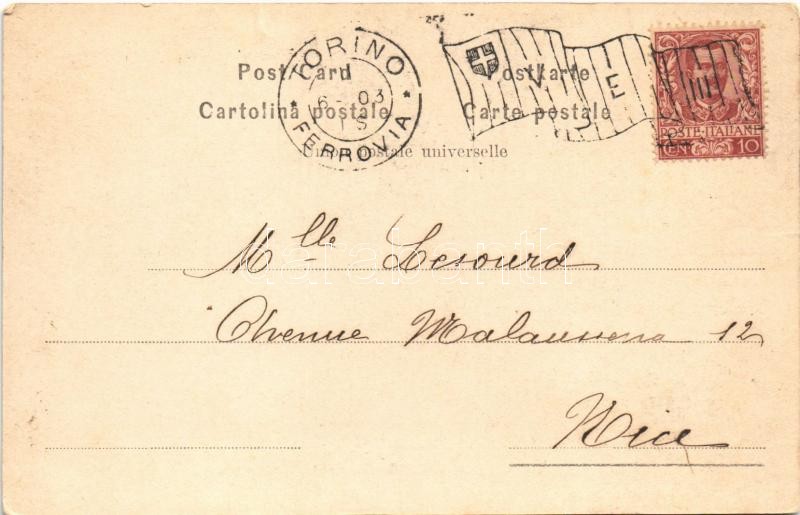 TORINO
FERROVIA
6 - 03
1 S
V E III
Post Card Postkarte
Cartolina postale Carte postale
Union postale universelle
POSTE ITALIANE
CENT 10
Mlle Lesourd
Avenue Malaussena 12
Nice
darabanth